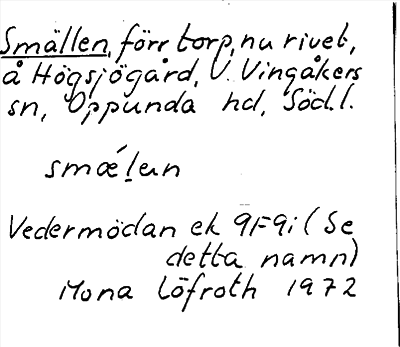 Smällen, förr torp, nu rivet,
å Högsjögård, V. Vingåkers
sn, Oppunda hd, Söd.l.
smǽḷen
Vedermödan ek 9F9i (Se
detta namn)
Mona Löfroth 1972